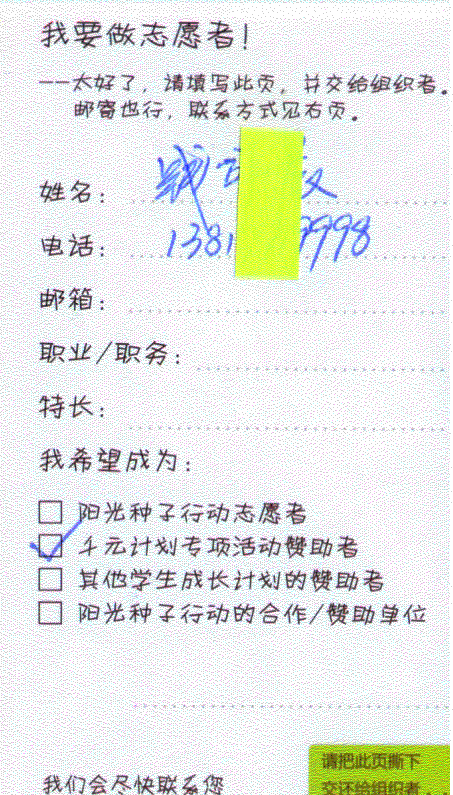 我要做志愿者!
——太好了,请填写此页,并交给组织者。
邮寄也行,联系方式见右页。
姓名:
电话:138 9998
邮箱:
职业/职务:
特长:
我希望成为:
阳光种子行动志愿者
千元计划专项活动赞助者
其他学生成长计划的赞助者
阳光种子行动的合作/赞助单位
请把此页撕下
我们会尽快联系您
交还给组织者,